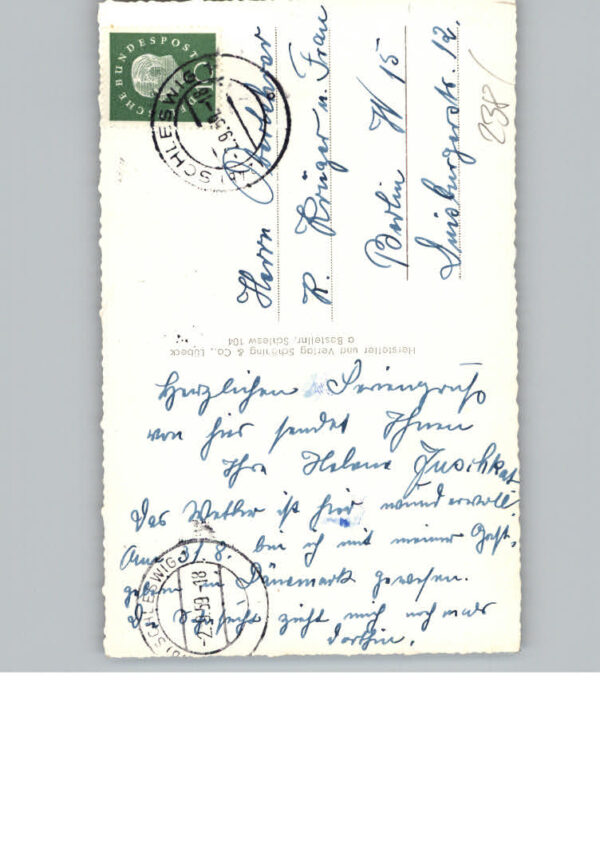 CHE BUNDESPOST
SCHLESWIG
-2.9.59-18
Herrn
R. Krüger u. Frau
Berlin W 15
Duisburgerstr. 12.
238
Hersteller und Verlag Schöning & Co., Lübeck
Bestellnr. Schlesw 104
Herzlichen Feriengruß
von hier sendet Ihnen
Ihre Helene Juschkat
Das Wetter ist hier wundervoll.
Am 31.8. bin ich mit meiner Gast-
geberin in Dänemark gewesen.
D. Sehnsucht zieht mich nochmals
dorthin.
SCHLESWIG
-2.9.59-18